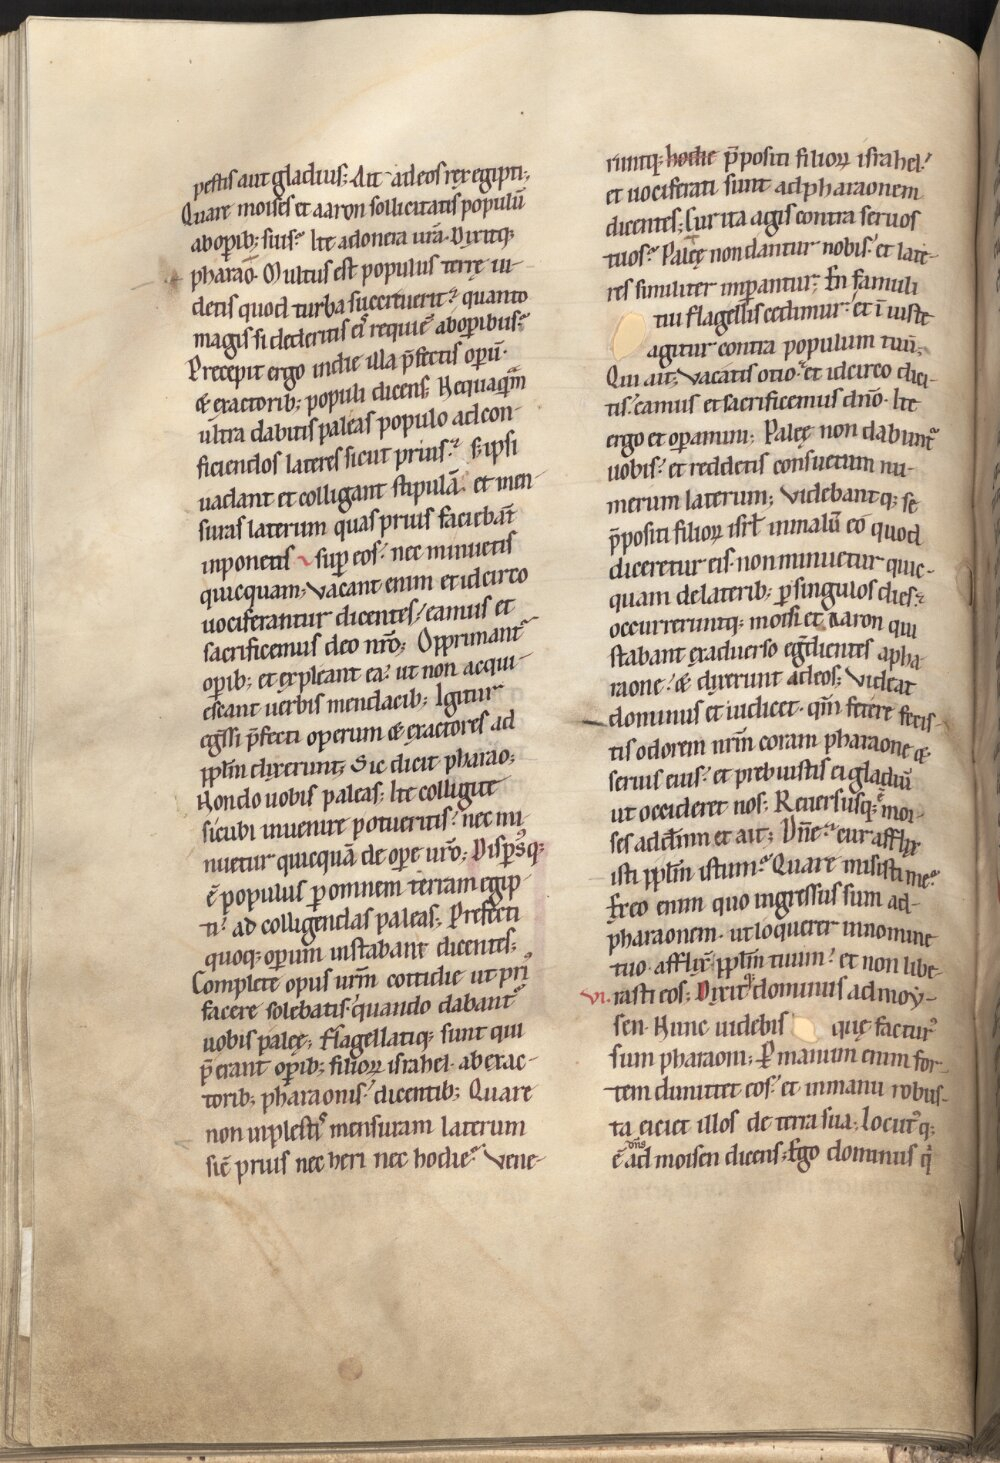 pestis aut gladius; Ait ad eos rex egipti;
Quare moises et aaron sollicitatis populū
ab oꝑib; suis? Ite ad onera ur̄a. Dixitq;
pharao. Multus est populus terrę ui-
detis quod turba succreuerit? quanto
magis si dederitis ei requiē ab oꝑibus?
Precepit ergo in die illa p̄fectis operū.
& exactorib; populi dicens; Nequaquā
ultra dabitis paleas populo ad con-
ficiendos lateres sicut prius? s; ipsi
uadant et colligant stipulā. et men-
suras laterum quas prius faciebāt
inponetis suꝑ eos. nec minuetis
quicquam; Vacant enim et idcirco
uociferantur dicentes. eamus et
sacrificemus deo nr̄o; Opprimant᷑
oꝑib; et expleant ea. ut non acqui-
escant uerbis mendacib; Igitur
egr̄ssi p̄fecti operum & exactores ad
pp̄lm dixerunt; Sic dicit pharao;
Non do uobis paleas; Ite colligite
sicubi inuenire potueritis. nec mi-
nuetur quicquā de oꝑe ur̄o; Disꝑsꝰq;
ē populus ꝑ omnem terram egip-
ti. ad colligendas paleas; Prefecti
quoq; oꝑum instabant dicentes;
Complete opus ur̄m cottidie ut priꝰ
facere solebatis quando dabant᷑
uobis palęę; Flagellatiq; sunt qui
p̄erant oꝑib; filioꝝ israhel. ab exac-
torib; pharaonis. dicentib; Quare
non inpletiſ mensuram laterum
sic̄ prius nec heri nec hodie? Vene-
runtq; hodie p̄positi filioꝝ israhel.
et uociferati sunt ad pharaonem
dicentes; Cur ita agis contra seruos
tuos? Palęę non dantur nobis. et late-
res similiter inꝑantur; En famuli
tui flagellis cedimur. et ī iuste
agitur contra populum tuū;
Qui ait; Vacatis otio. et idcirco dici-
tis. eamus et sacrificemus dn̄o. Ite
ergo et oꝑamini; Palęę non dabunt᷑
uobis. et reddetis consuetum nu-
merum laterum; Videbantq; se
p̄positi filioꝝ isr̄l in malū eo quod
diceretur eis. non minuetur quic-
quam de laterib; ꝑ singulos dies.
occurreruntq; moisi et Aaron qui
stabant ex aduerso egr̄dientes a pha
raone. & dixerunt ad eos; Videat
dominus et iudicet. qm̄ fetere fecis-
tis odorem nr̄m coram pharaone &
seruis eius. et prebuistis ei gladiū
ut occideret nos; Reuersusq; ē moi-
ses ad dn̄m et ait; Dn̄e. cur afflix
isti pp̄lm istum? Quare misisti me?
Ex eo enim quo ingressus sum ad
pharaonem. ut loquerer in nomine
tuo. afflix̄ pp̄lm tuum. et non libe-
vi. rasti eos; Dixitꝙ dominus ad moy-
sen. Nunc uidebis quę facturꝰ
sum pharaoni; Ꝑ manum enim for-
tem dimittet eos. et in manu robus-
ta eiciet illos de terra sua; Locutꝰq;
dn̄s
ē ad moisen dicens; Ego dominus qͥ